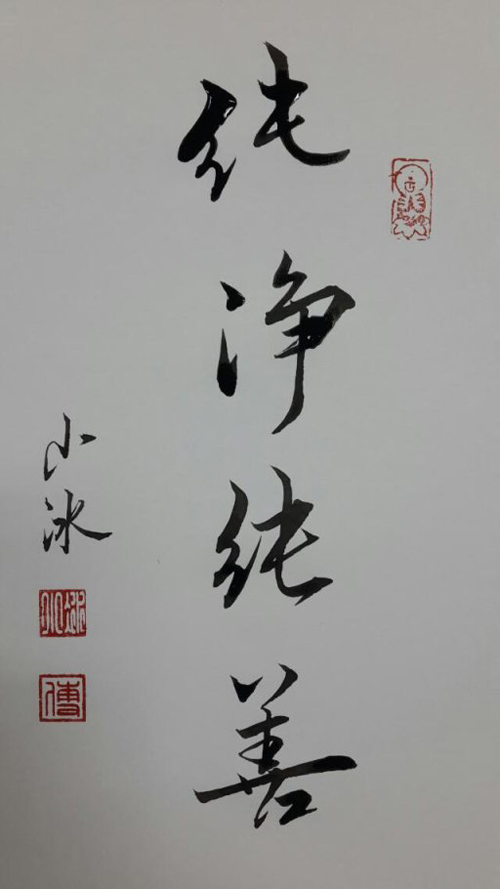 纯净纯善
小冰